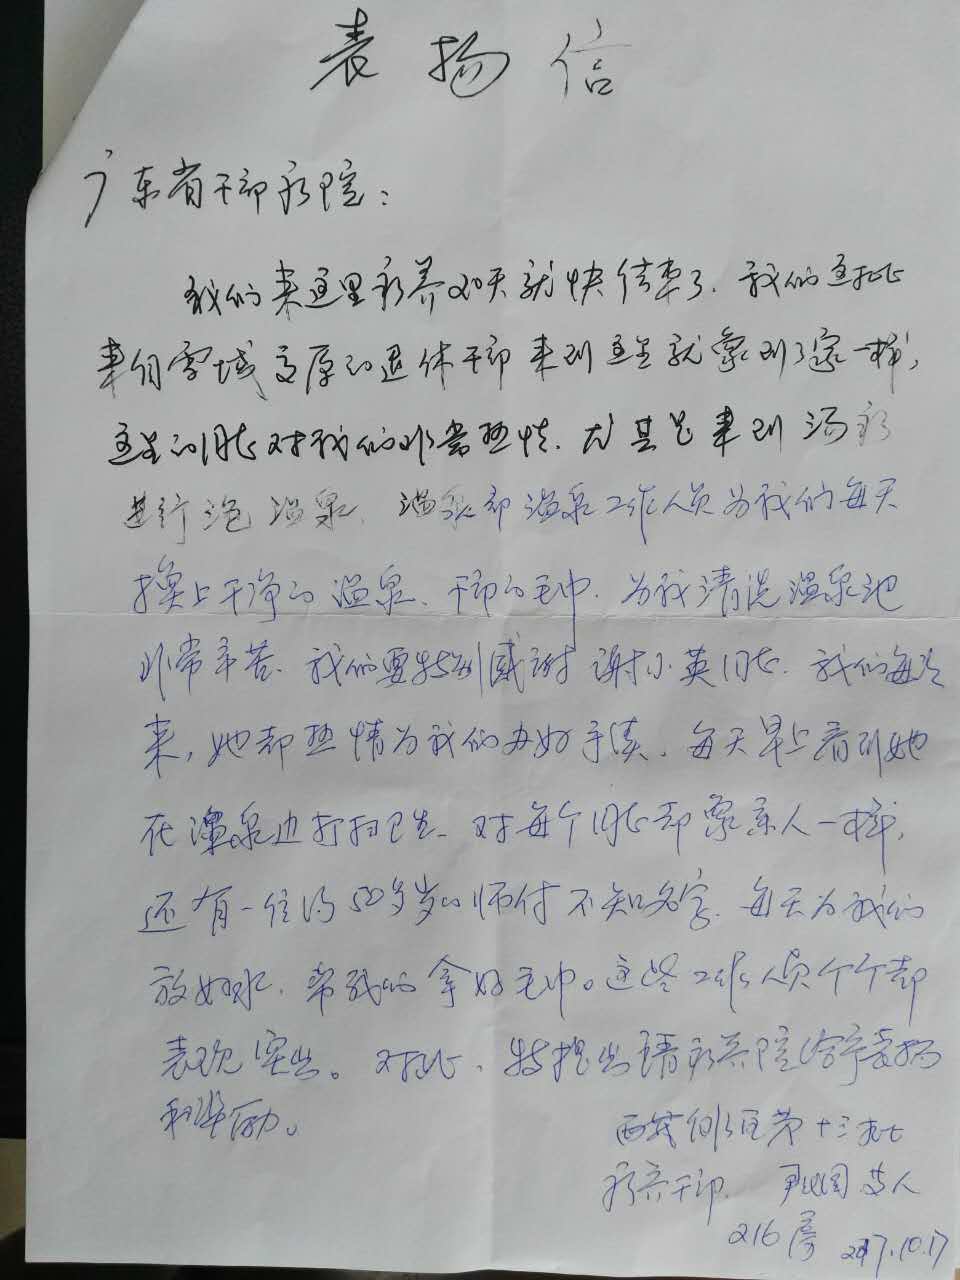 表扬信
广东省干部疗养院:
我们来这里疗养20天就快结束了.我们这批
来自雪域高原的退休干部来到这里就象到了家一样,
这里的同志对我们非常热情.尤其是来到汤疗
进行泡温泉、温泉部温泉工作人员为我们每天
换上干净的温泉、干净的毛巾.为我清洗温泉池
非常辛苦.我们要特别感谢谢小英同志.我们每次
来,她都热情为我们办好手续.每天早上看到她
在温泉边打扫卫生、对每个同志都象亲人一样,
还有一位约50多岁的师付不知名字.每天为我们
放好水、帮我们拿好毛巾。这些工作人员个个都
表现突出。对此、特提出请疗养院给予表扬
和奖励。
西藏自治区第十三批
疗养干部 等人
216房 2017.10.17